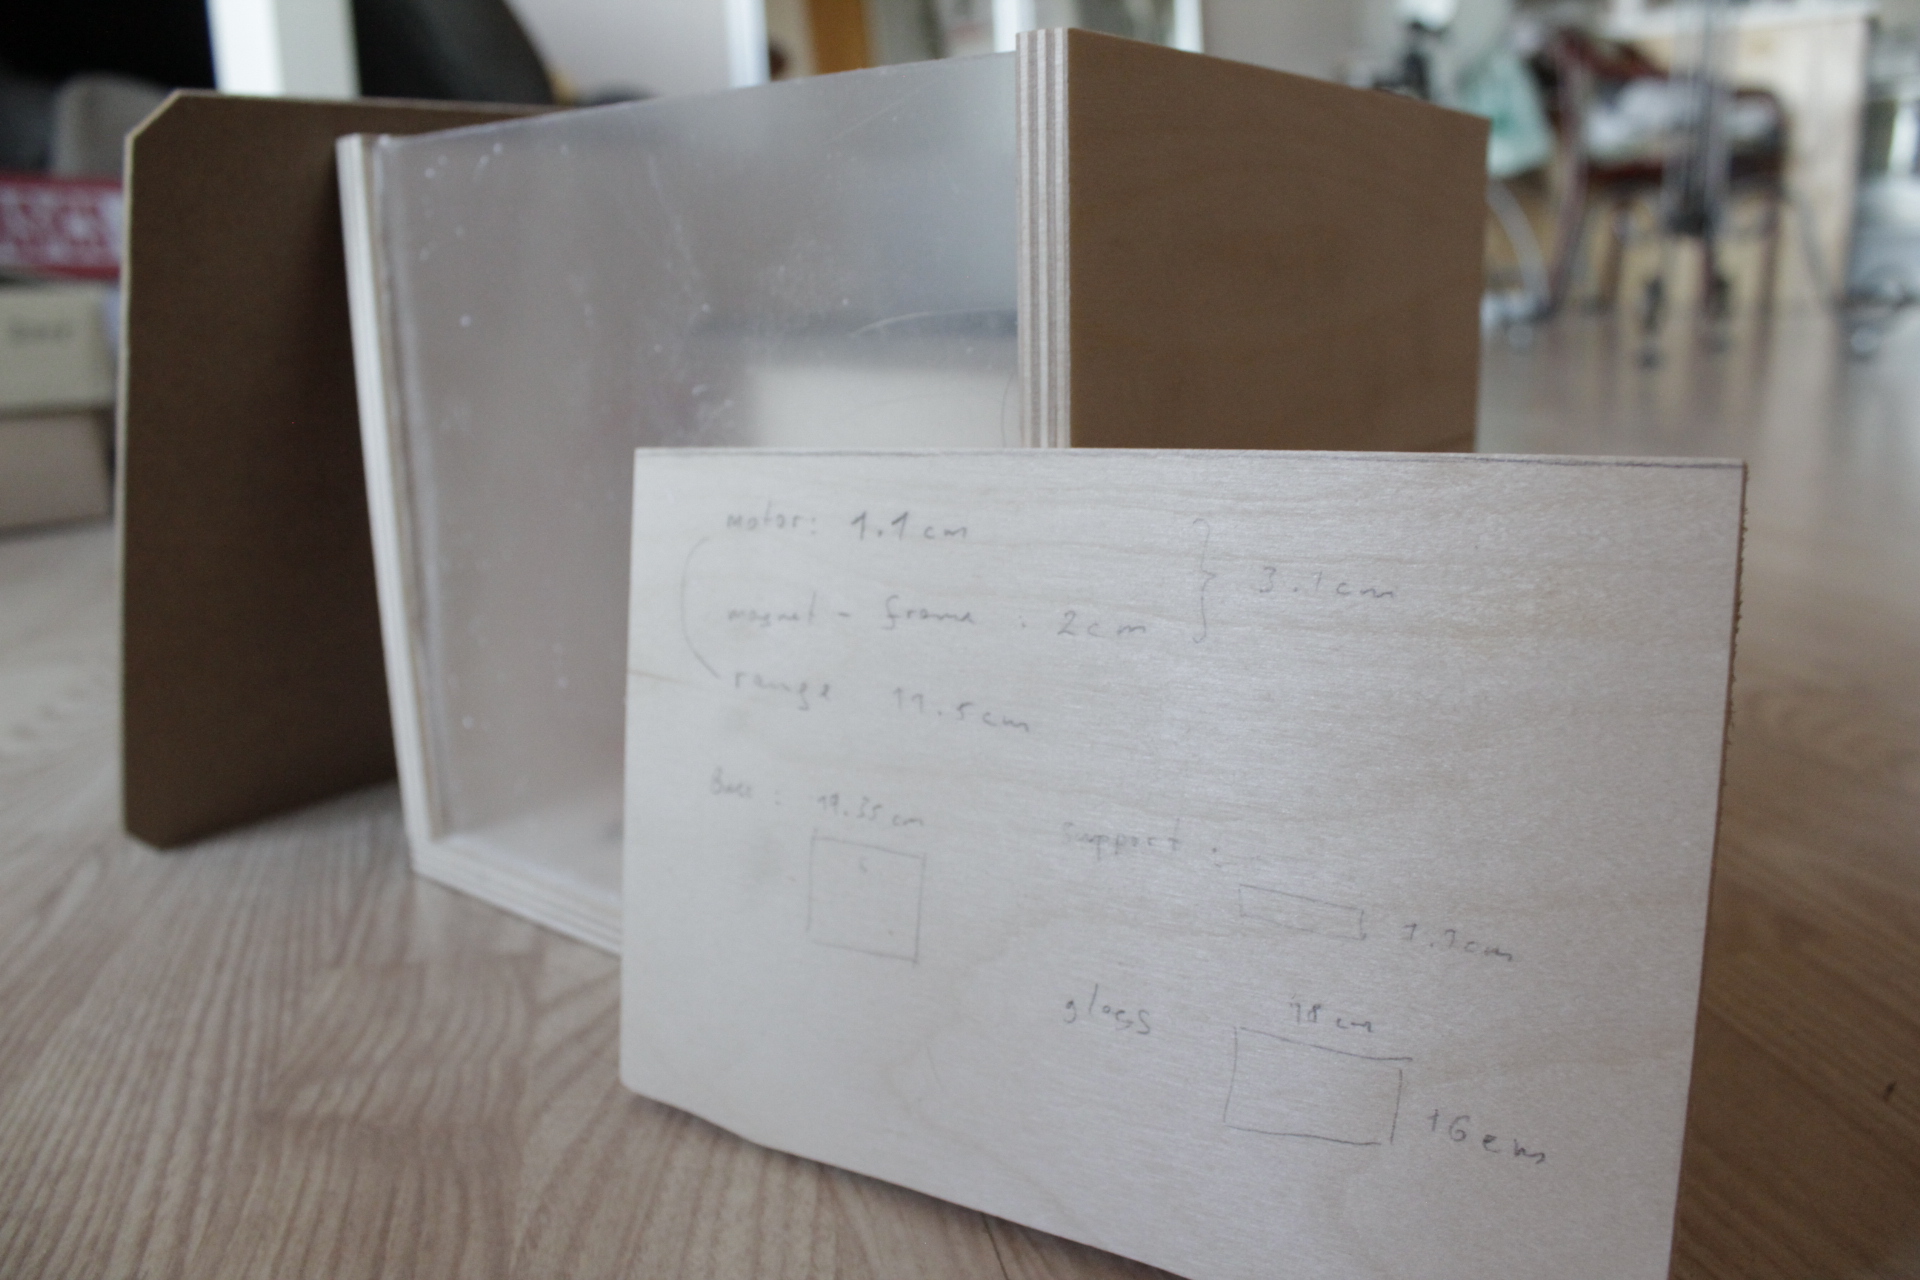 motor: 1.1 cm
magnet - frame : 2cm
} 3.1cm
range 11.5cm
Base : 19.35 cm
support :
1.1cm
glass
18 cm
16cm